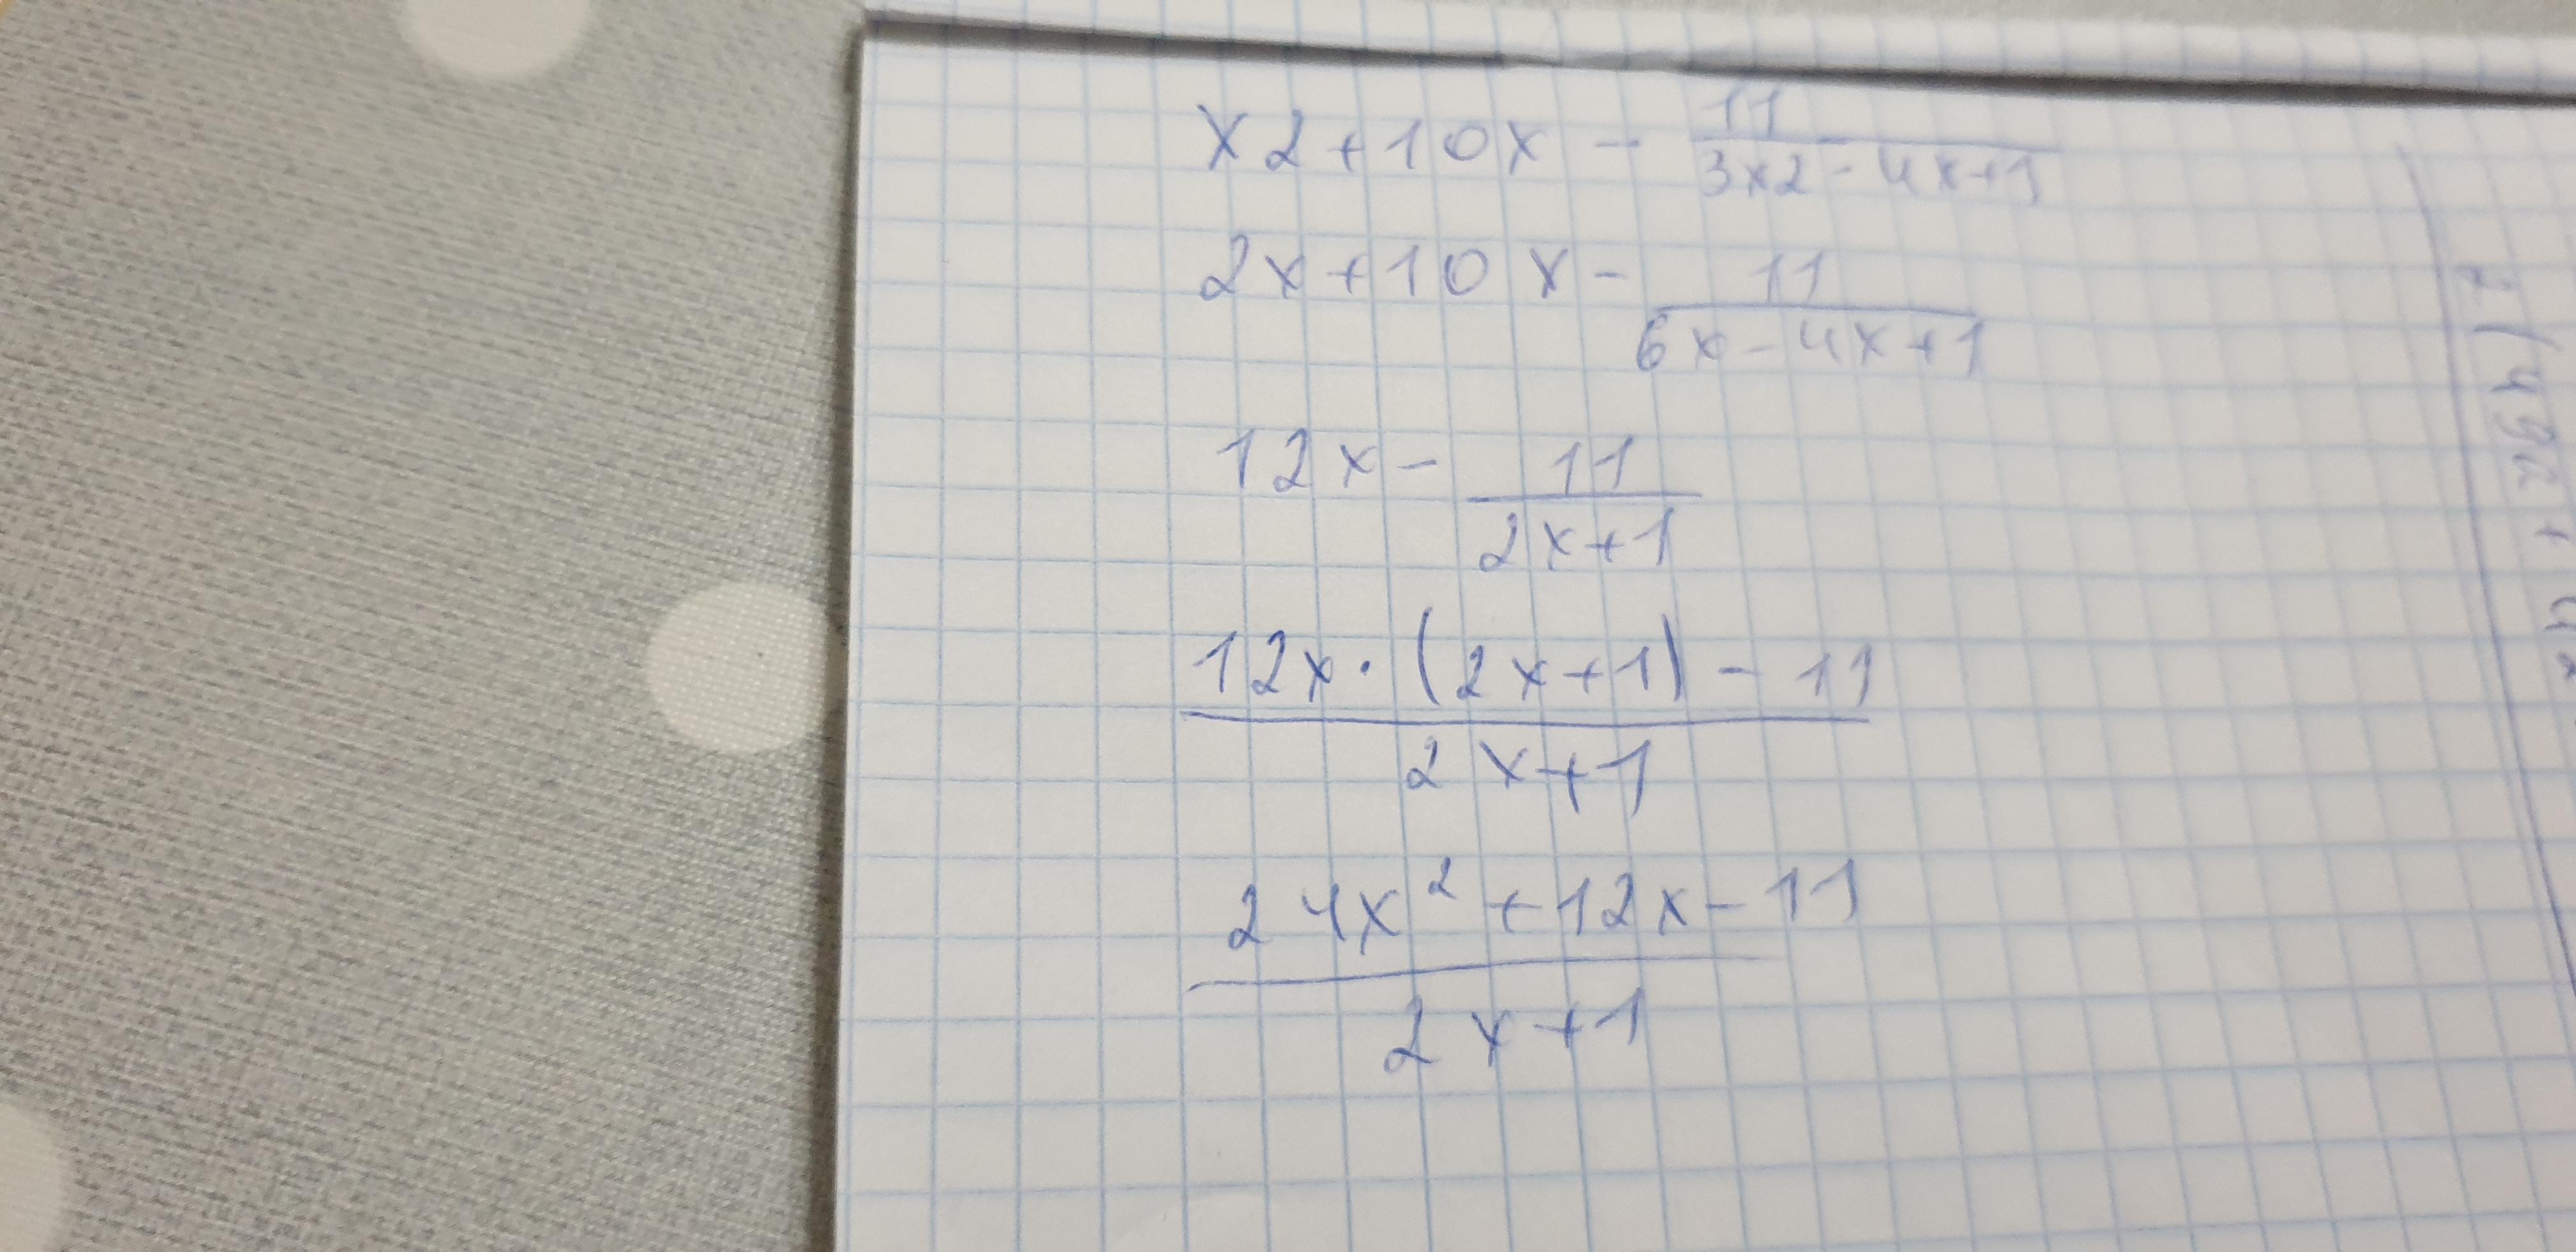 x2+10x - 11/3x2-4x+1
2x+10x - 11/6x-4x+1
12x - 11/2x+1
12x·(2x+1)-11/2x+1
24x²+12x-11/2x+1